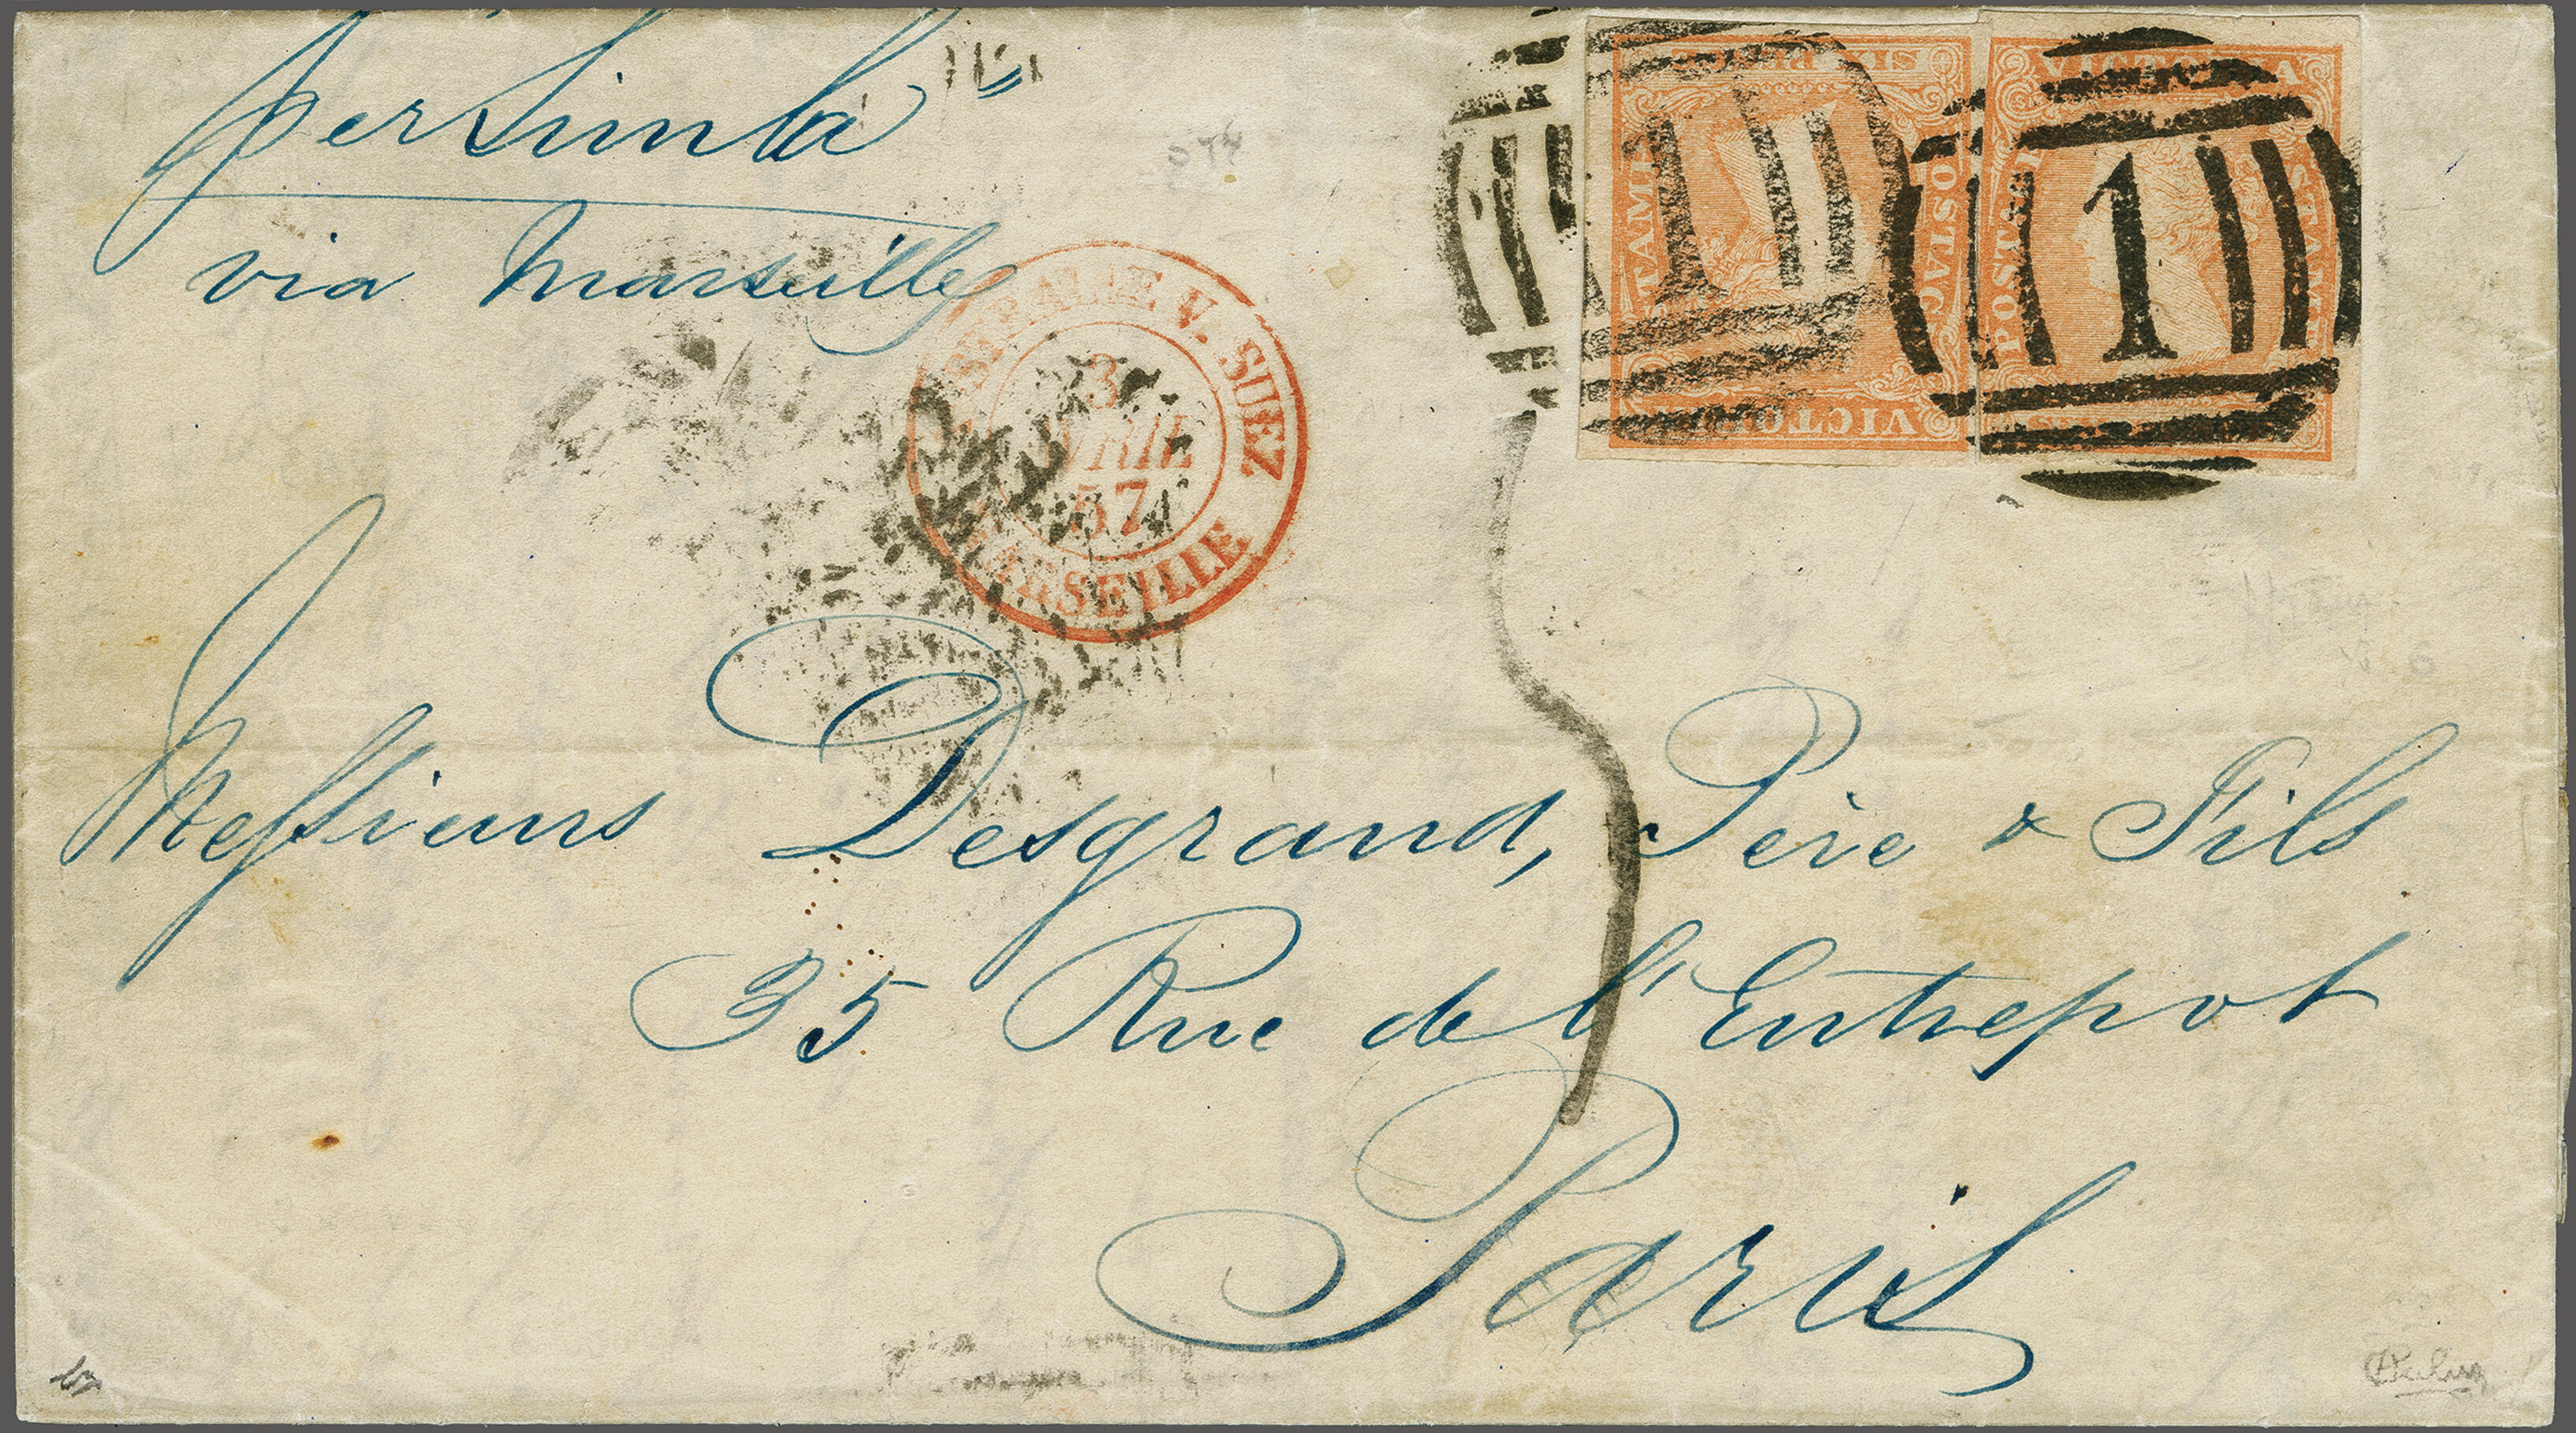 per Simla
via Marseille
SIX PE
STAMP
POSTA
VICTOR
VICTORIA
POSTAGE
STAMP
1
1
V. SUEZ
3
AVRIL
57
MARSEILLE
Messieurs Desgrand, Père & Fils
35 Rue de l'Entrepot
Paris